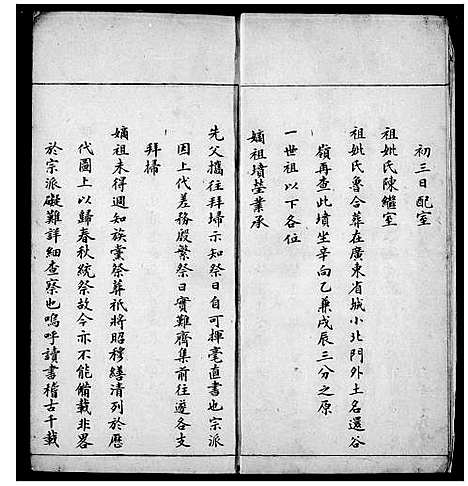 初三日配室
祖妣氏陳繼室
祖妣氏魯合葬在廣東省城小北門外土名還谷
嶺再查此墳坐辛向乙兼戌辰三分之原
一世祖以下各位
嫡祖墳塋業承
先父攜往拜埽示知祭日自可揮毫直書也宗派
因上代差務殷繁祭日實難齊集前往邊各支
拜埽
嫡祖未得週知族黨祭葬祇將昭穆繕清列於歷
代圖上以歸春秋統祭故今亦不能備載非畧
於宗派礙難詳細查察也嗚呼讀書稽古千載